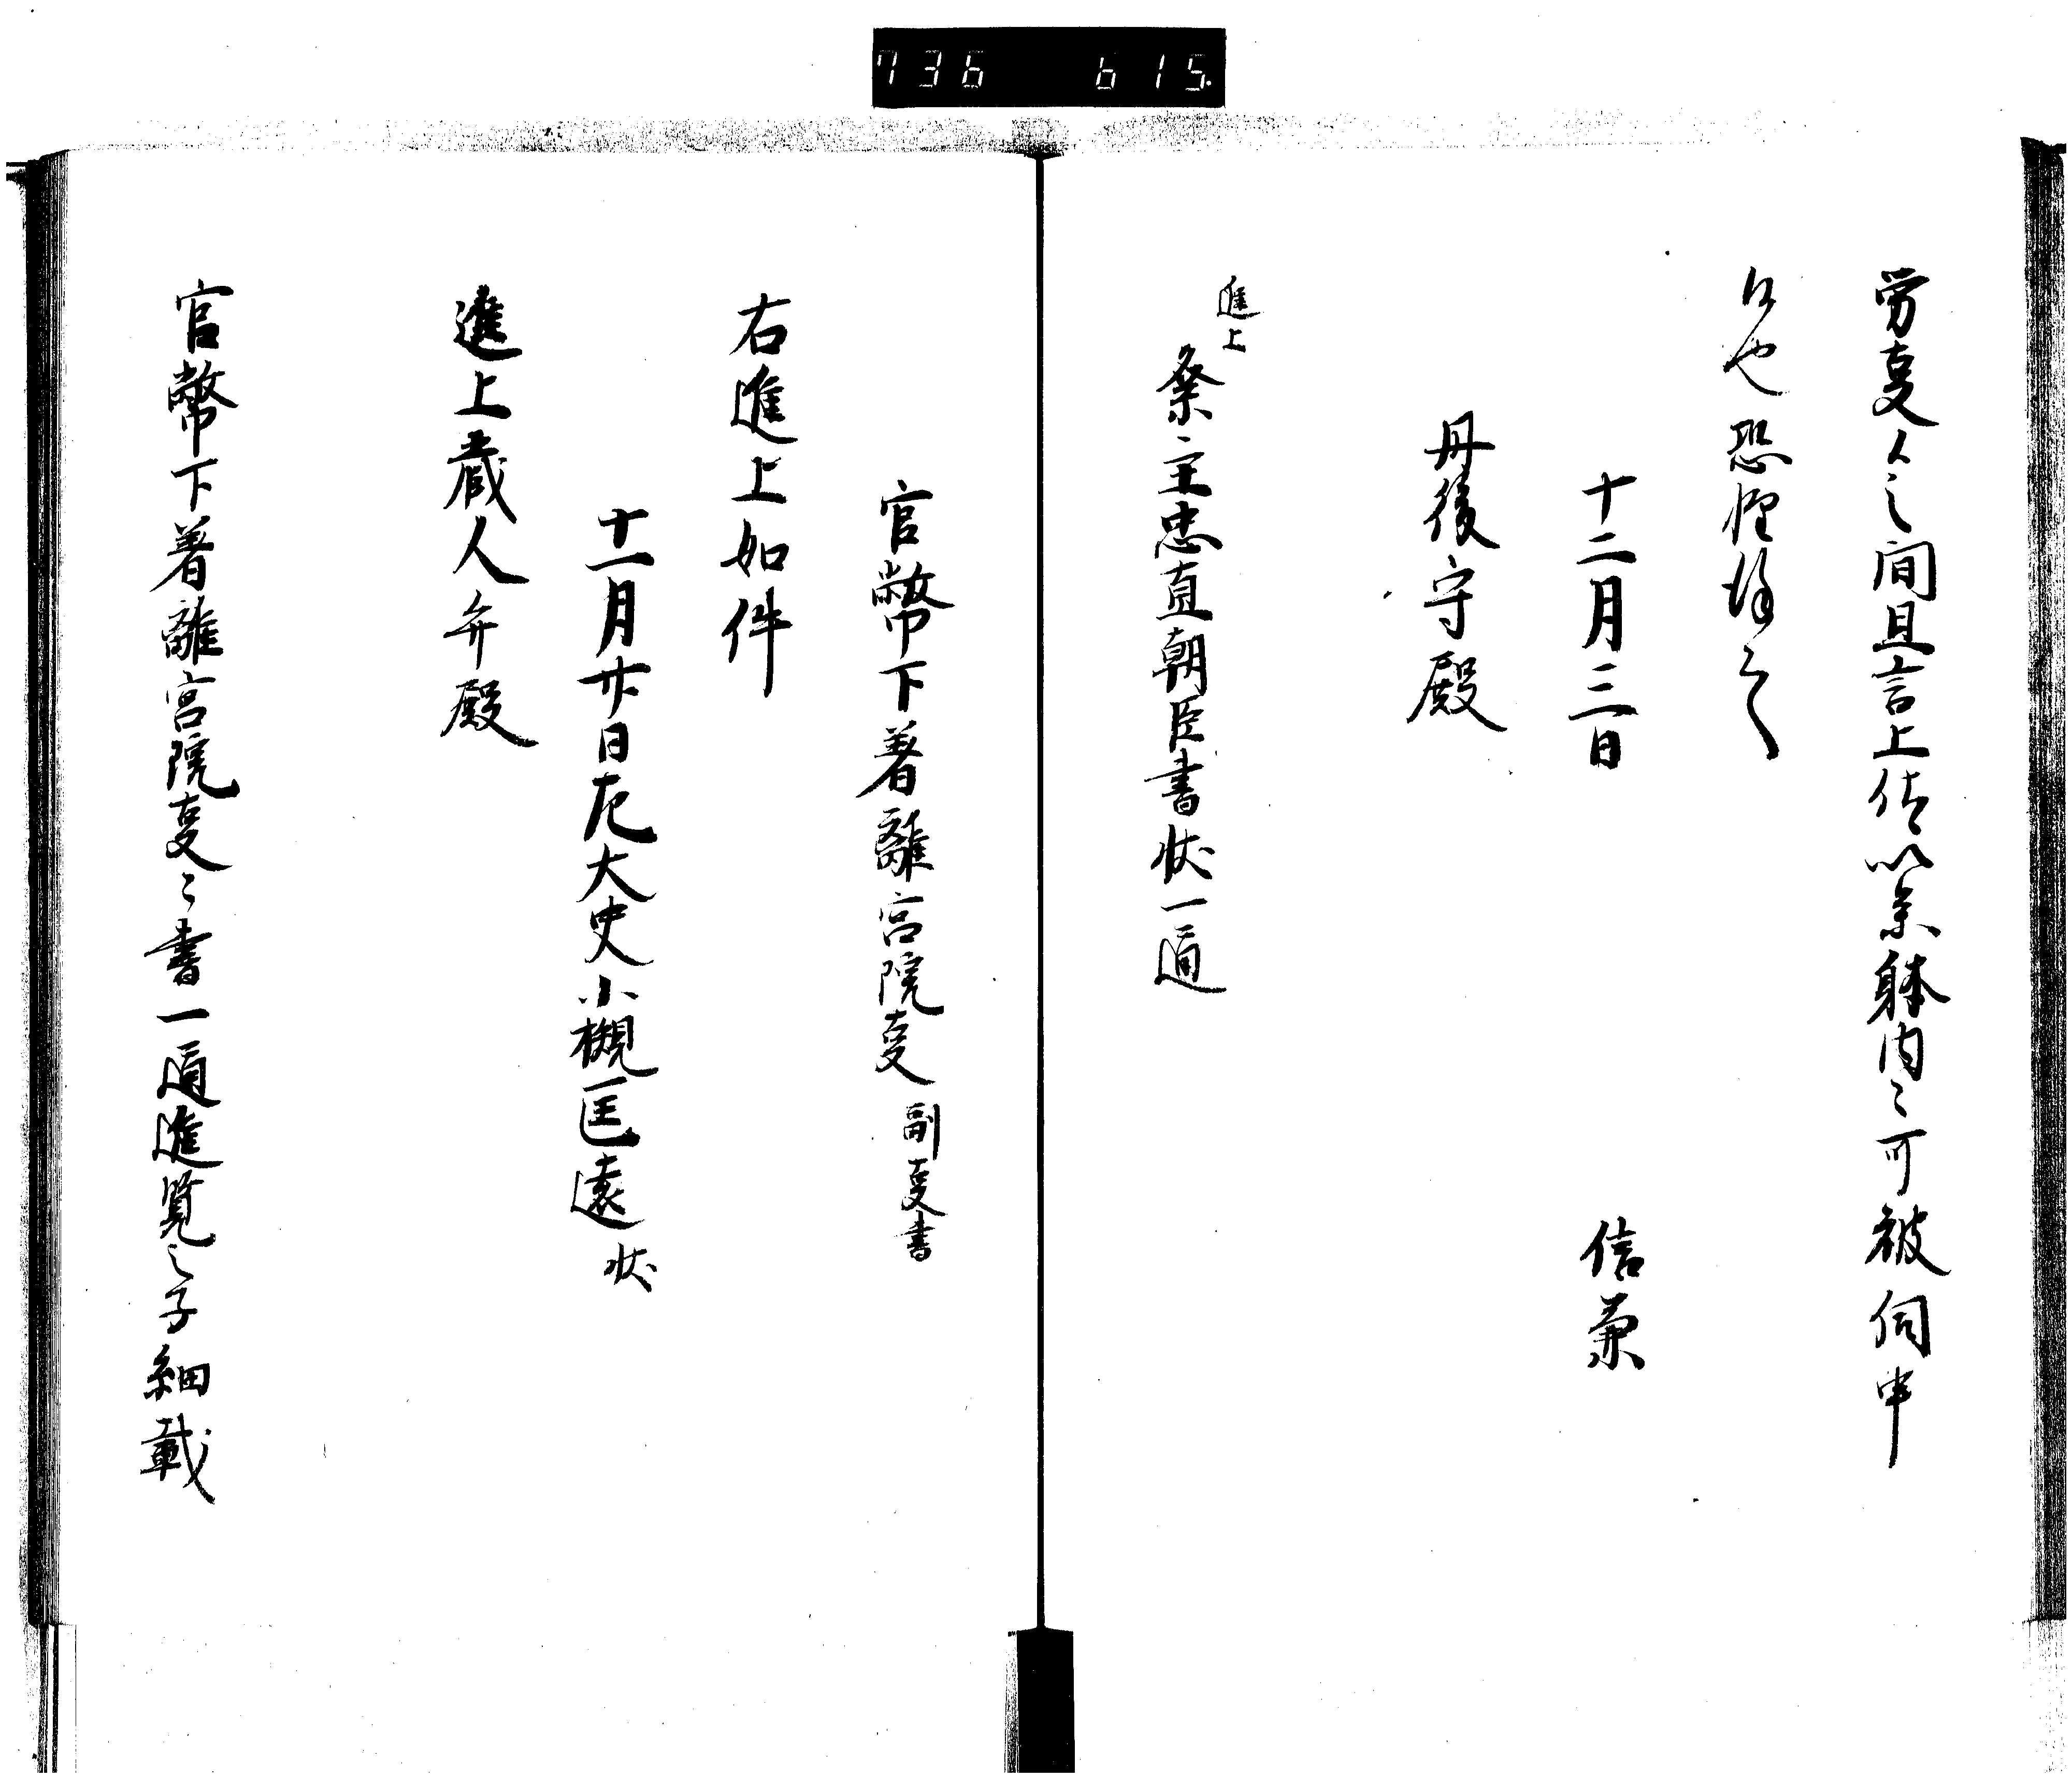 736 615
労叓人之間且言上仕以条躰内〻可被伺申
候也恐惶謹言
十二月三日 信兼
丹後守殿
進上
祭主忠直朝臣書状一通
官幣下著離宮院叓 副叓書
右進上如件
十一月廿日左大史小槻匡遠状
進上蔵人弁殿
官幣下著離宮院叓〻書一通進覧之子細載